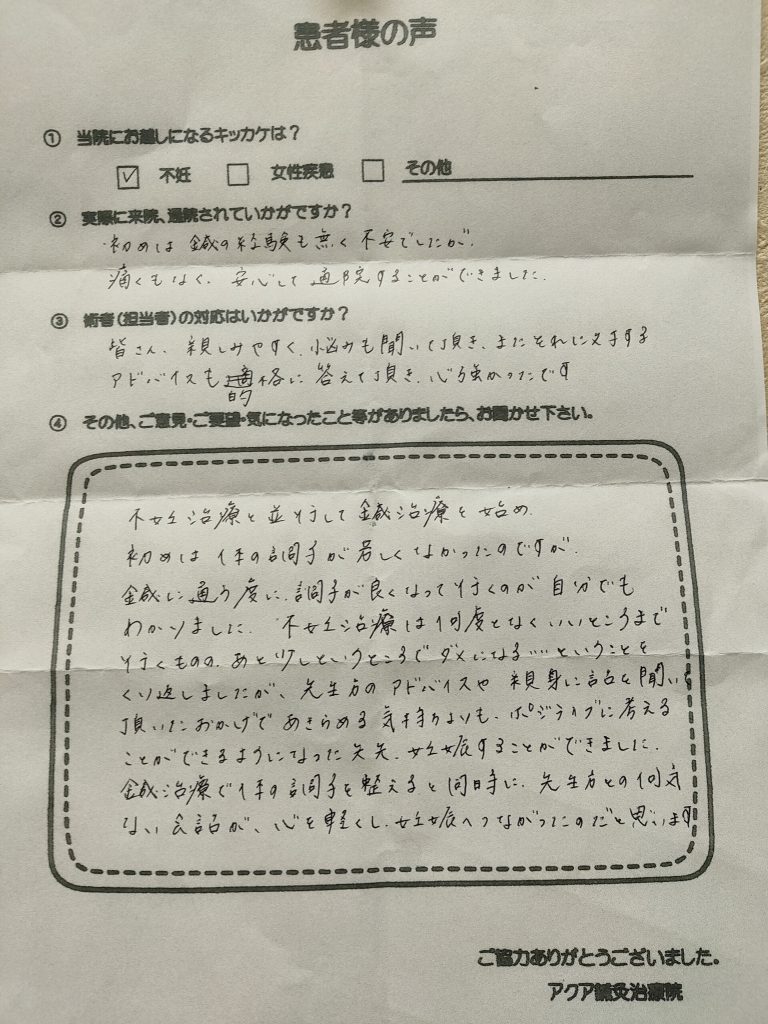 患者様の声
① 当院にお越しになるキッカケは？
☑ 不妊 □ 女性疾患 □ その他
② 実際に来院、通院されていかがですか？
初めは 鍼の経験も無く 不安でしたが、
痛くもなく、安心して 通院することができました。
③ 術者(担当者)の対応はいかがですか？
皆さん、親しみやすく、悩みも聞いて頂き、またそれに対する
アドバイスも適格に 答えて頂き、心強かったです
的
④ その他、ご意見・ご要望・気になったこと等がありましたら、お聞かせ下さい。
不妊治療と並行して鍼治療を始め、
初めは体の調子が芳しくなかったのですが、
鍼に通う度に、調子が良くなって行くのが自分でも
わかりました。不妊治療は何度となくいいところまで
行くものの、あと少しというところでダメになる……ということを
くり返しましたが、先生方のアドバイスや親身に話を聞いて
頂いたおかげであきらめる気持ちよりも、ポジティブに考える
ことができるようになった矢先、妊娠することができました。
鍼治療で体の調子を整えると同時に、先生方との何気
ない会話が、心を軽くし、妊娠へつながったのだと思います
ご協力ありがとうございました。
アクア鍼灸治療院